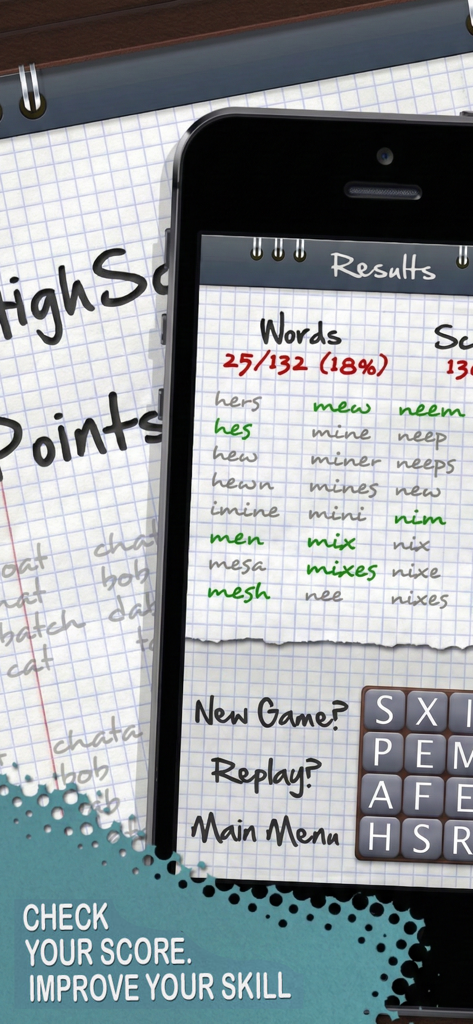 HighSc
Points
oat chat
hat bob
batch dab
cat
chata
bob
Results
Words Sc
25/132 (18%) 13
hers mew neem
hes mine neep
hew miner neeps
hewn mines new
imine mini nim
men mix nix
mesa mixes nixe
mesh nee nixes
New Game?
Replay?
Main Menu
S X I
P E M
A F E
H S R
CHECK
YOUR SCORE.
IMPROVE YOUR SKILL